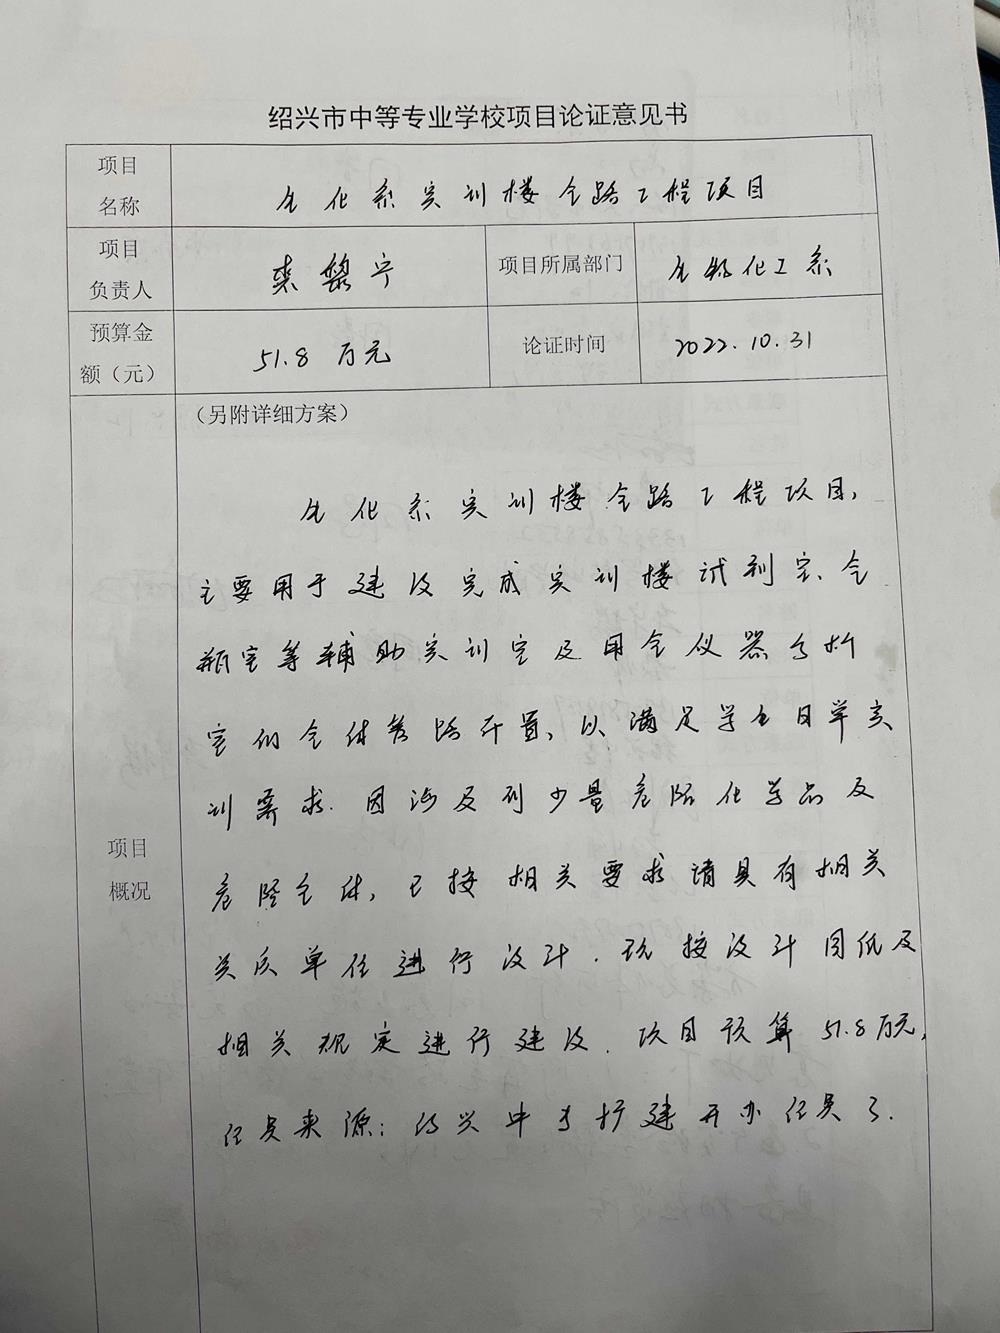 绍兴市中等专业学校项目论证意见书
项目
名称
生化系实训楼气路工程项目
项目
负责人
裘黎宁
项目所属部门
生物化工系
预算金
额（元）
51.8 万元
论证时间
2022.10.31
（另附详细方案）
项目
概况
生化系实训楼气路工程项目，
主要用于建设完成实训楼试剂室、气
瓶室等辅助实训室及用气仪器分析
室的气体管路布置，以满足学生日常实
训需求．因涉及到少量危险化学品及
危险气体，已按相关要求请具有相关
资质单位进行设计．现按设计图纸及
相关规定进行建设．项目预算51.8万元，
经费来源：绍兴中专扩建开办经费